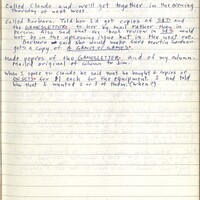 Called Claude and we'll get together in the evening
Thursday of next week.
Called Barbara. Told her I'd get copies of S&T and
the GAMESLETTER to her by mail rather than in
person. Also said that the book review in S&T would
not be in the upcoming issue but in the next one.
Barbara said she would make sure Martin Gardner
gets a copy of A GAMUT OF GAMES.
Made copies of the GAMESLETTER and of my column.
Mailed original of column to him.
When I spoke to Claude he said that he bought 6 copies of
for $1 each for the equipment. I had told
him that I wanted 2 or 3 of them. (when?)